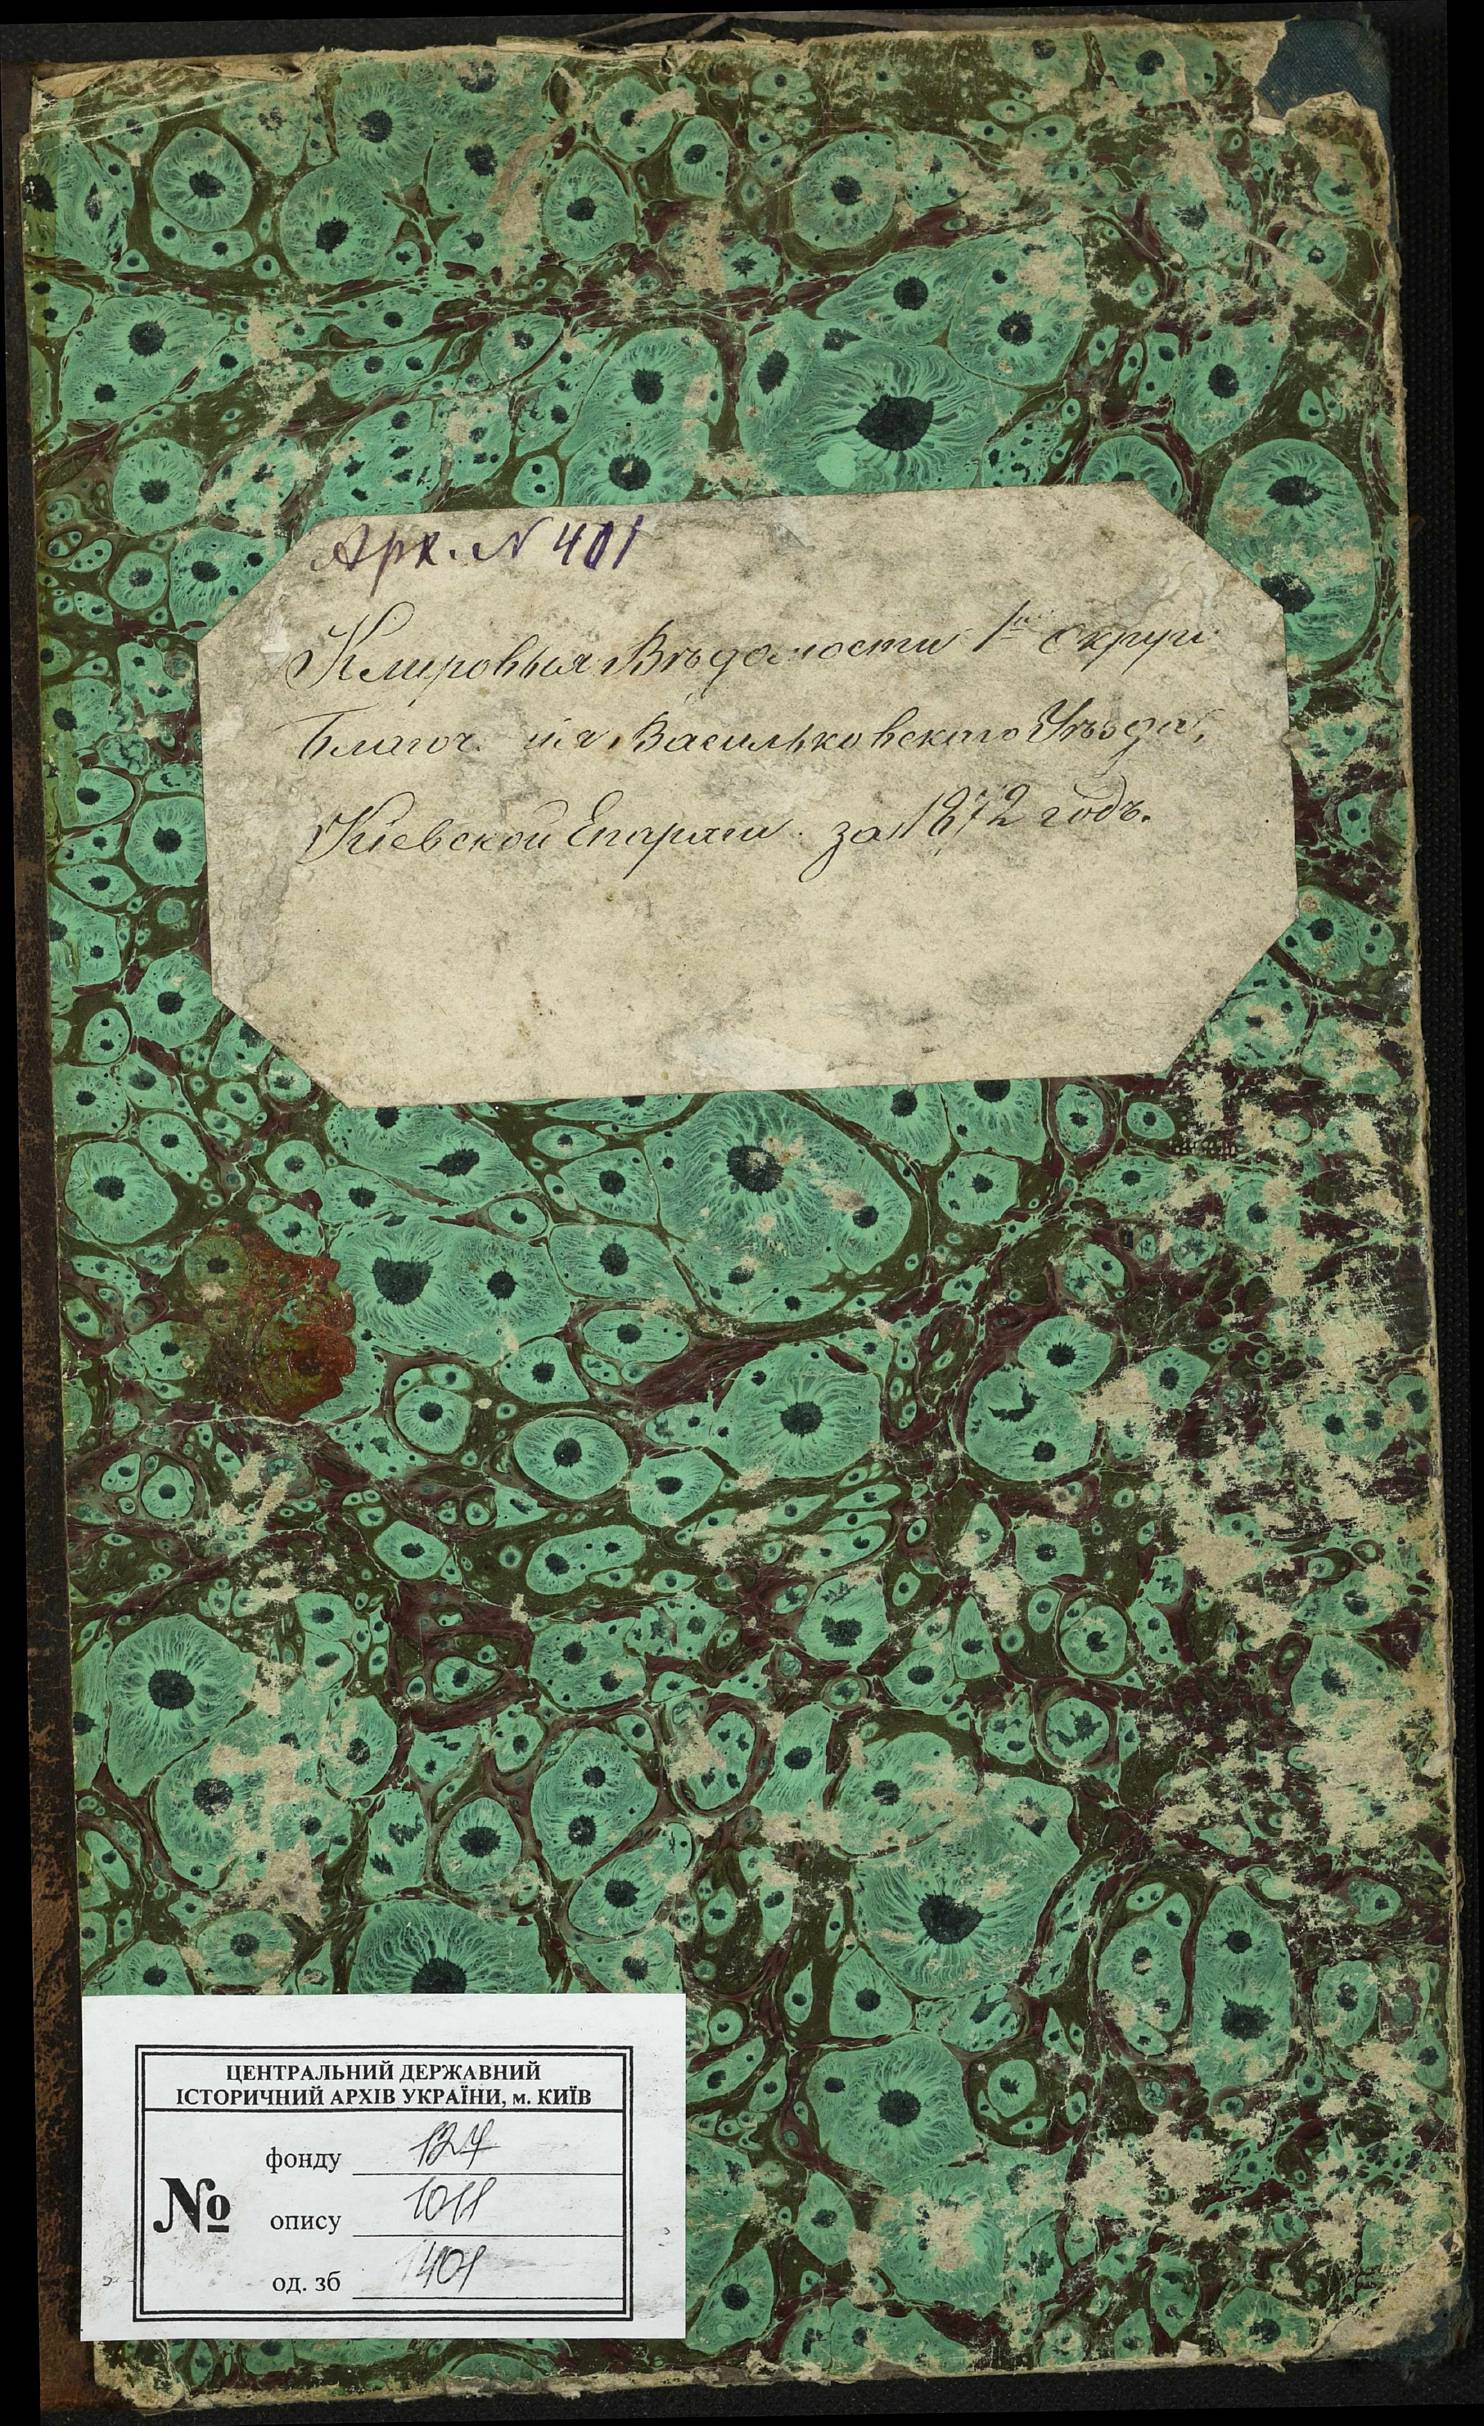 Арх. N 401
Клировыя Вѣдомости 1го Округа
Благоч ия Васильковскаго Уѣзда,
Кіевской Епархіи за 1872 годъ.
ЦЕНТРАЛЬНИЙ ДЕРЖАВНИЙ
ІСТОРИЧНИЙ АРХІВ УКРАЇНИ, м. КИЇВ
№
фонду 127
опису 1011
од. зб 1401